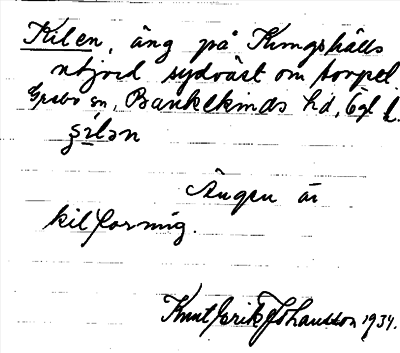 Kilen, äng på Kungshälls
utjord sydväst om torpet.
Grebo sn, Bankekinds hd, Ögl l.
ṣi̱lən
Ängen är
kilformig.
Knut Erik Johansson 1934.